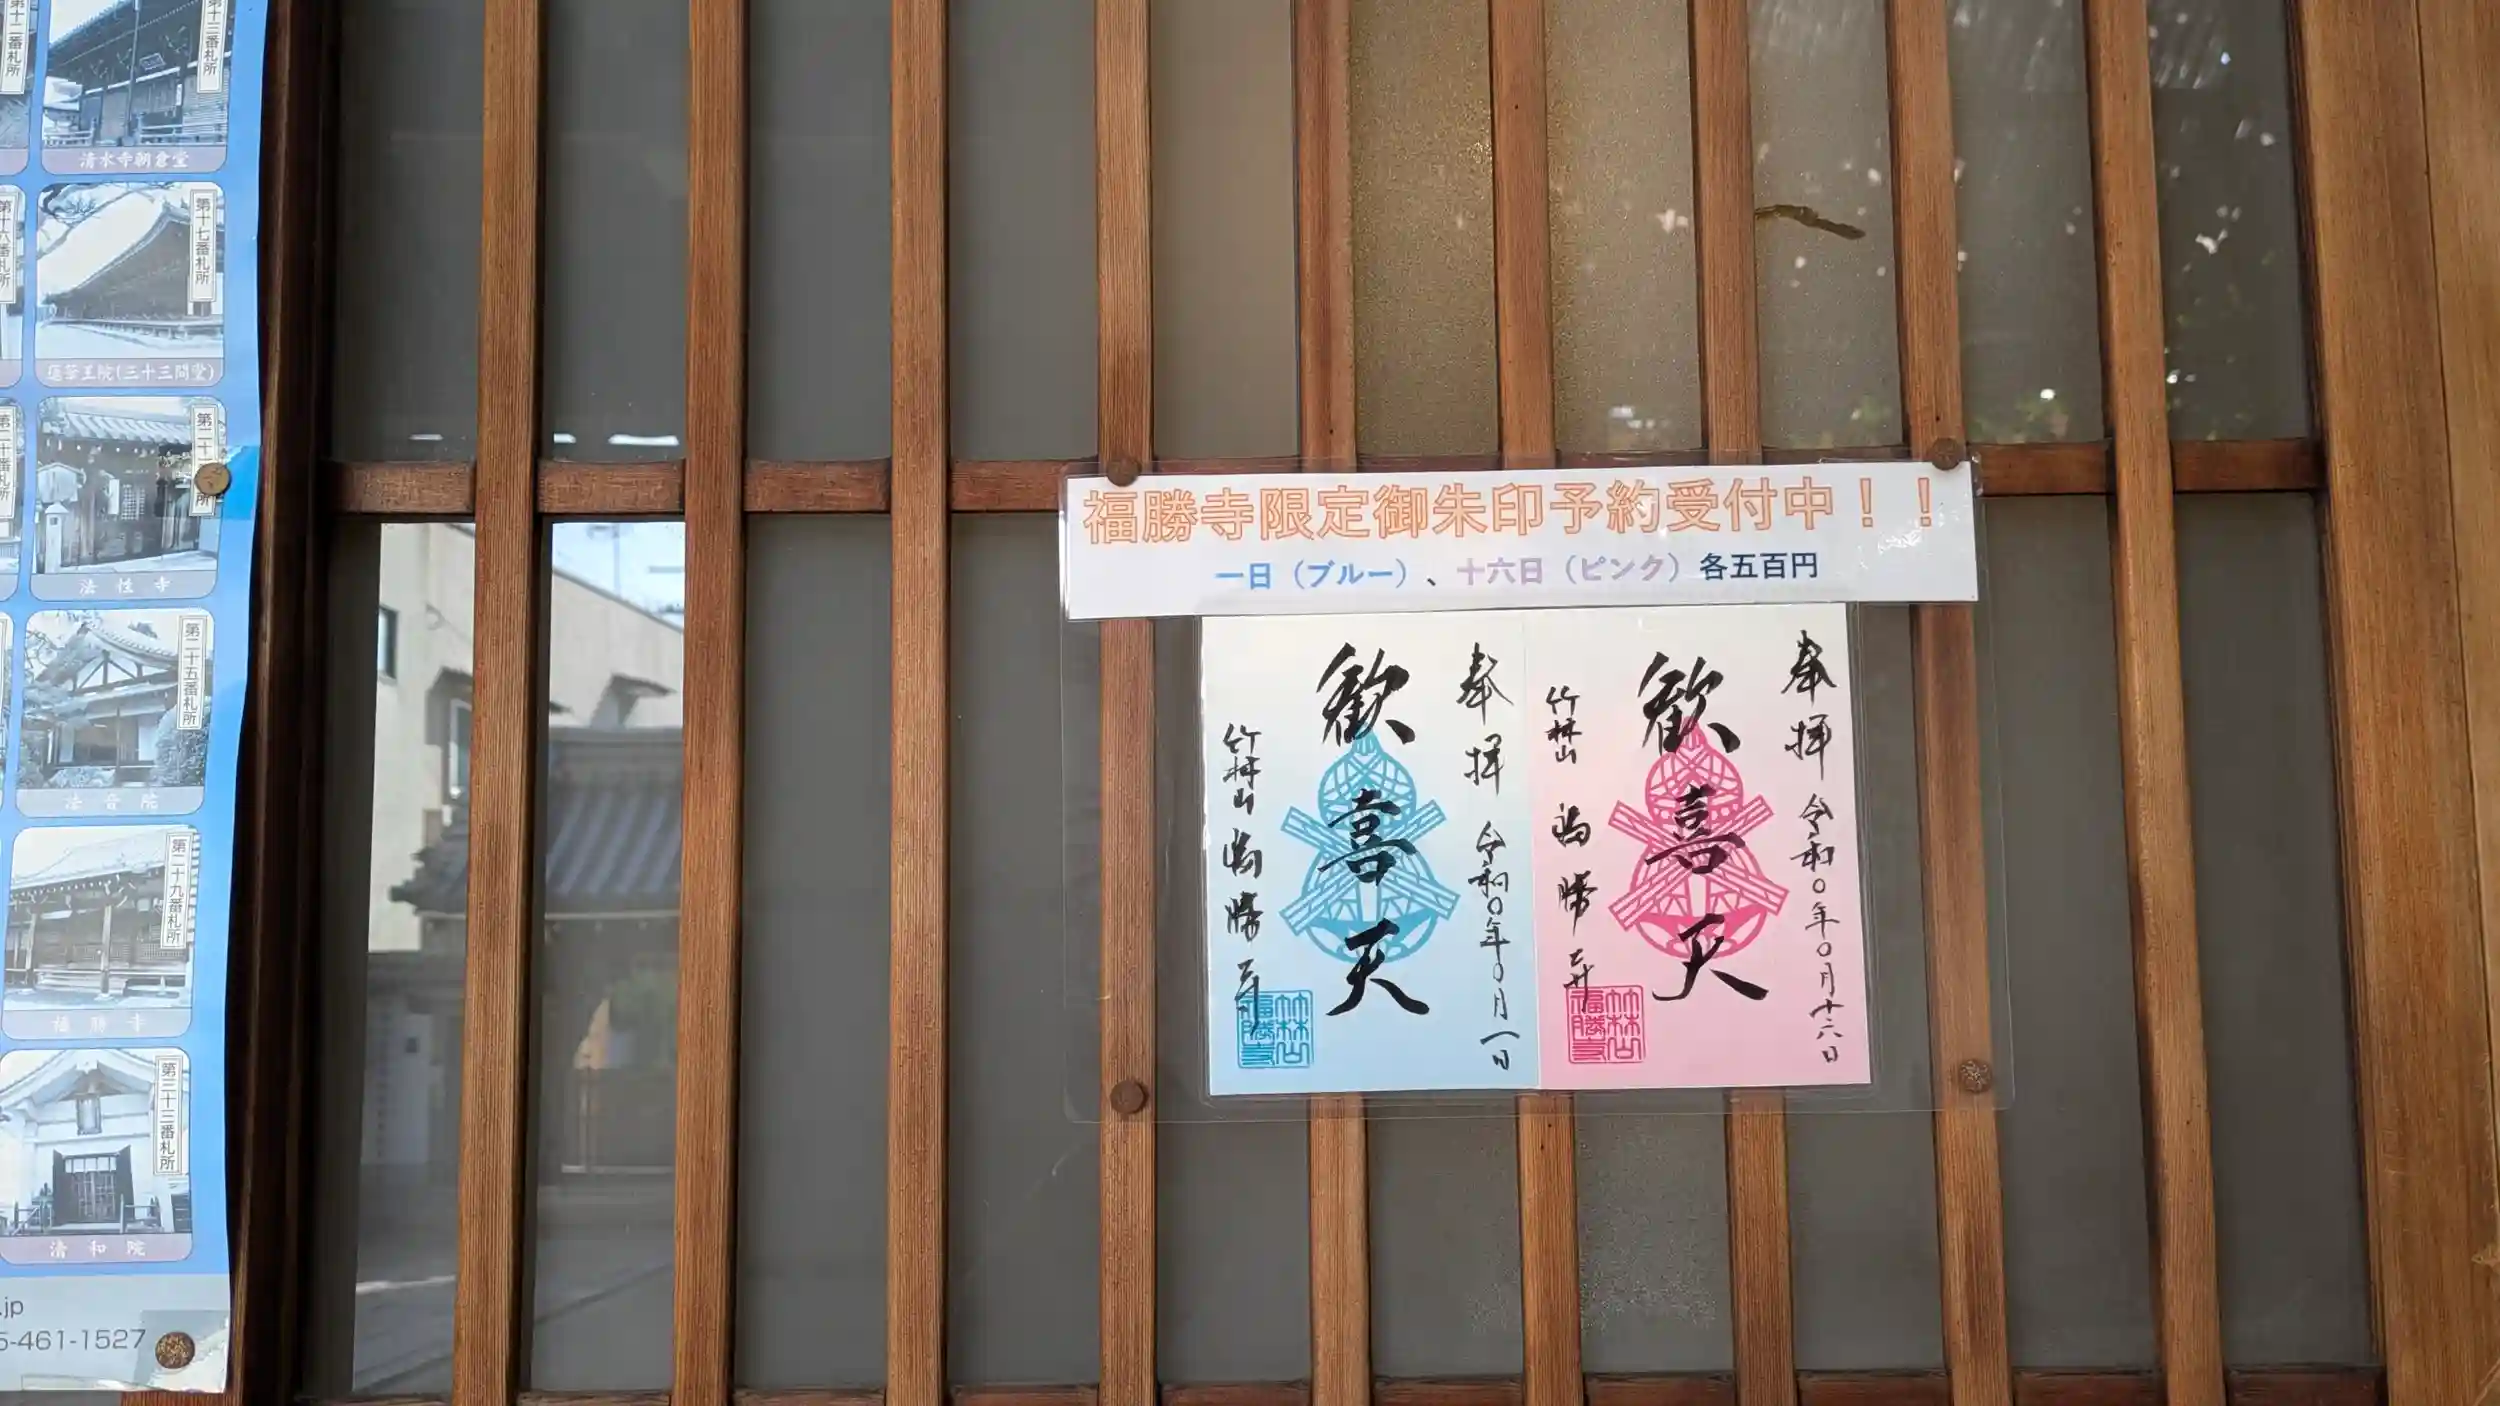 第十三番札所
清水寺朝倉堂
第十七番札所
蓮華王院(三十三間堂)
法性寺
第二十五番札所
法音院
第二十九番札所
福勝寺
第三十三番札所
清和院
.jp
5-461-1527
福勝寺限定御朱印予約受付中！！
一日（ブルー）、十六日（ピンク）各五百円
奉拝 令和〇年〇月一日
歓喜天
竹林山 福勝寺
竹林山福勝寺
奉拝 令和〇年〇月十六日
歓喜天
竹林山 福勝寺
竹林山福勝寺